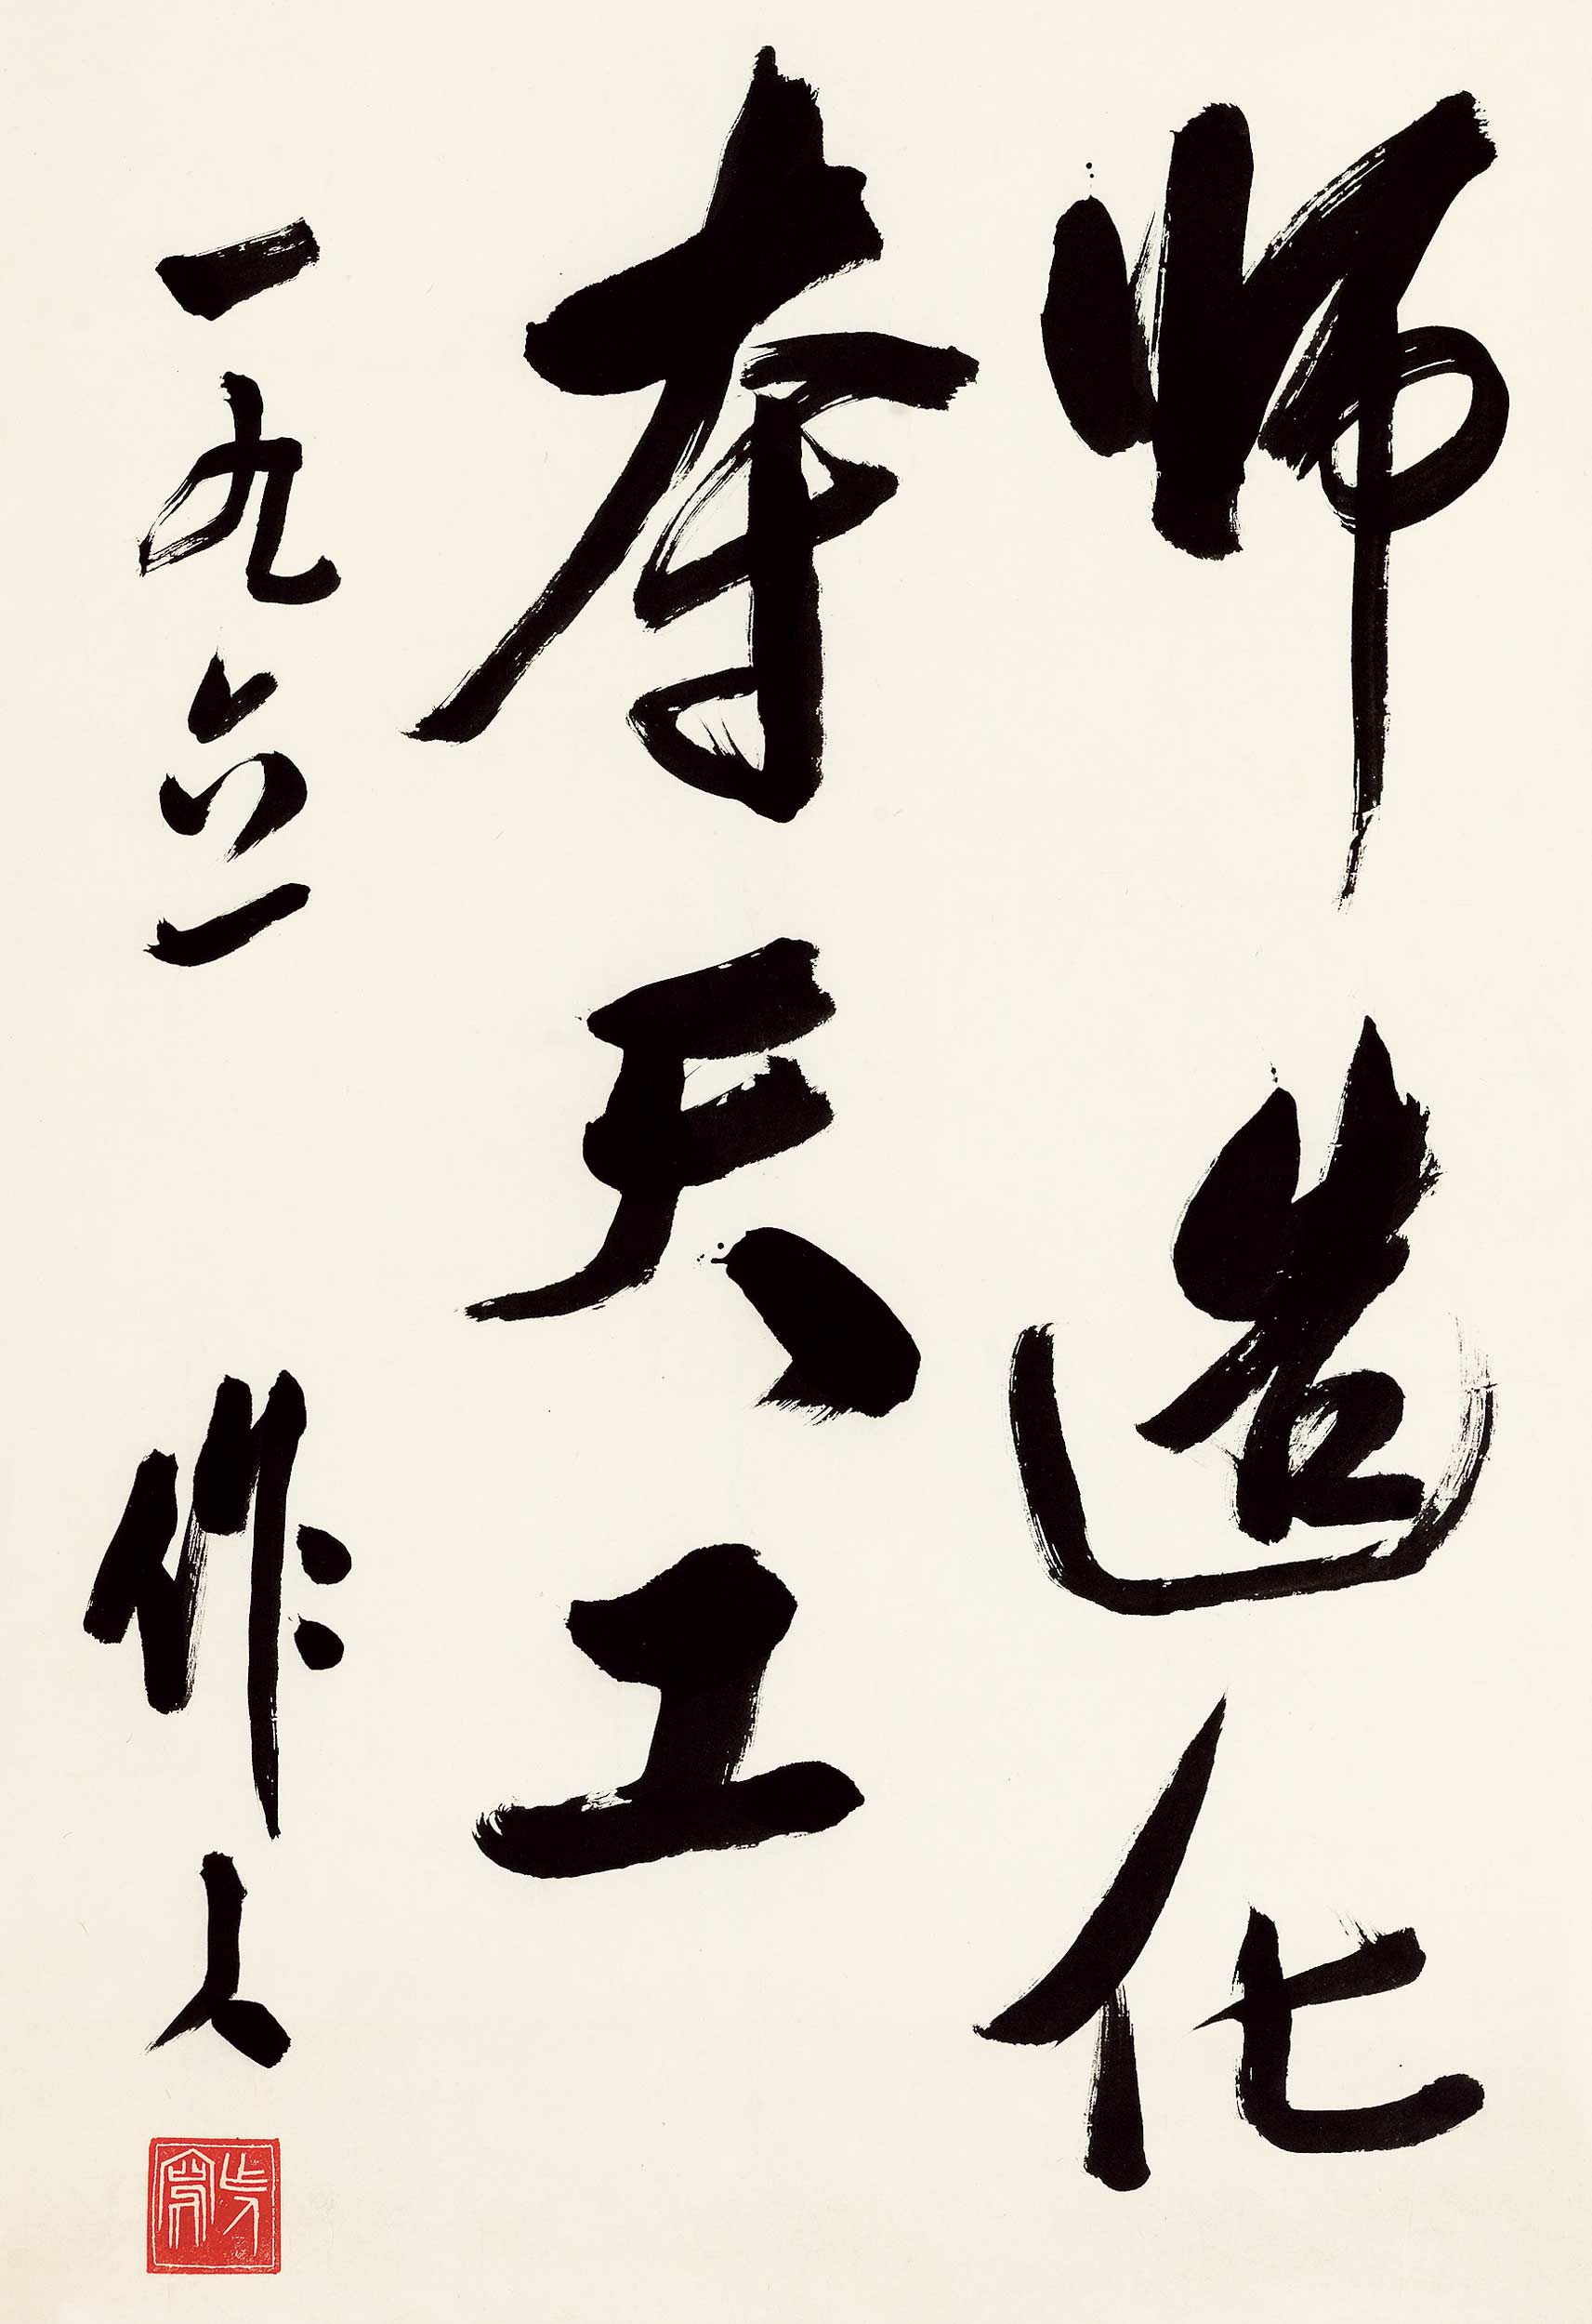 师造化
夺天工
一九六一 作人